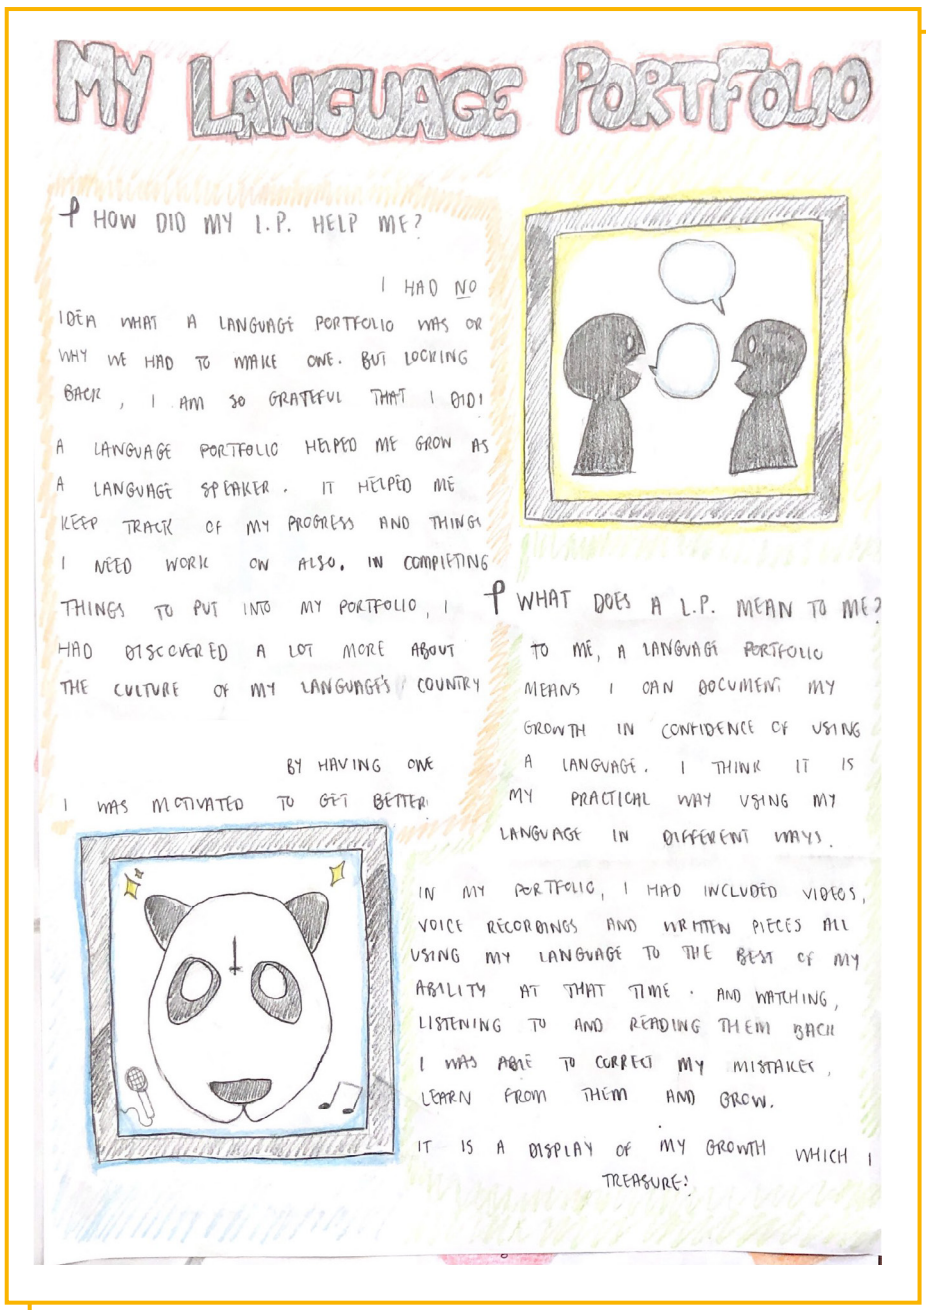 MY LANGUAGE PORTFOLIO
HOW DID MY L.P. HELP ME?
I HAD NO
IDEA WHAT A LANGUAGE PORTFOLIO WAS OR
WHY WE HAD TO MAKE ONE. BUT LOOKING
BACK, I AM SO GRATEFUL THAT I DID!
A LANGUAGE PORTFOLIO HELPED ME GROW AS
A LANGUAGE SPEAKER. IT HELPED ME
KEEP TRACK OF MY PROGRESS AND THINGS
I NEED WORK ON ALSO. IN COMPLETING
THINGS TO PUT INTO MY PORTFOLIO, I
HAD DISCOVERED A LOT MORE ABOUT
THE CULTURE OF MY LANGUAGE'S COUNTRY
BY HAVING ONE
I WAS MOTIVATED TO GET BETTER.
WHAT DOES A L.P. MEAN TO ME?
TO ME, A LANGUAGE PORTFOLIO
MEANS I CAN DOCUMENT MY
GROWTH IN CONFIDENCE OF USING
A LANGUAGE. I THINK IT IS
MY PRACTICAL WAY USING MY
LANGUAGE IN DIFFERENT WAYS.
IN MY PORTFOLIO, I HAD INCLUDED VIDEOS,
VOICE RECORDINGS AND WRITTEN PIECES ALL
USING MY LANGUAGE TO THE BEST OF MY
ABILITY AT THAT TIME. AND WATCHING,
LISTENING TO AND READING THEM BACK
I WAS ABLE TO CORRECT MY MISTAKES,
LEARN FROM THEM AND GROW.
IT IS A DISPLAY OF MY GROWTH WHICH I
TREASURE!